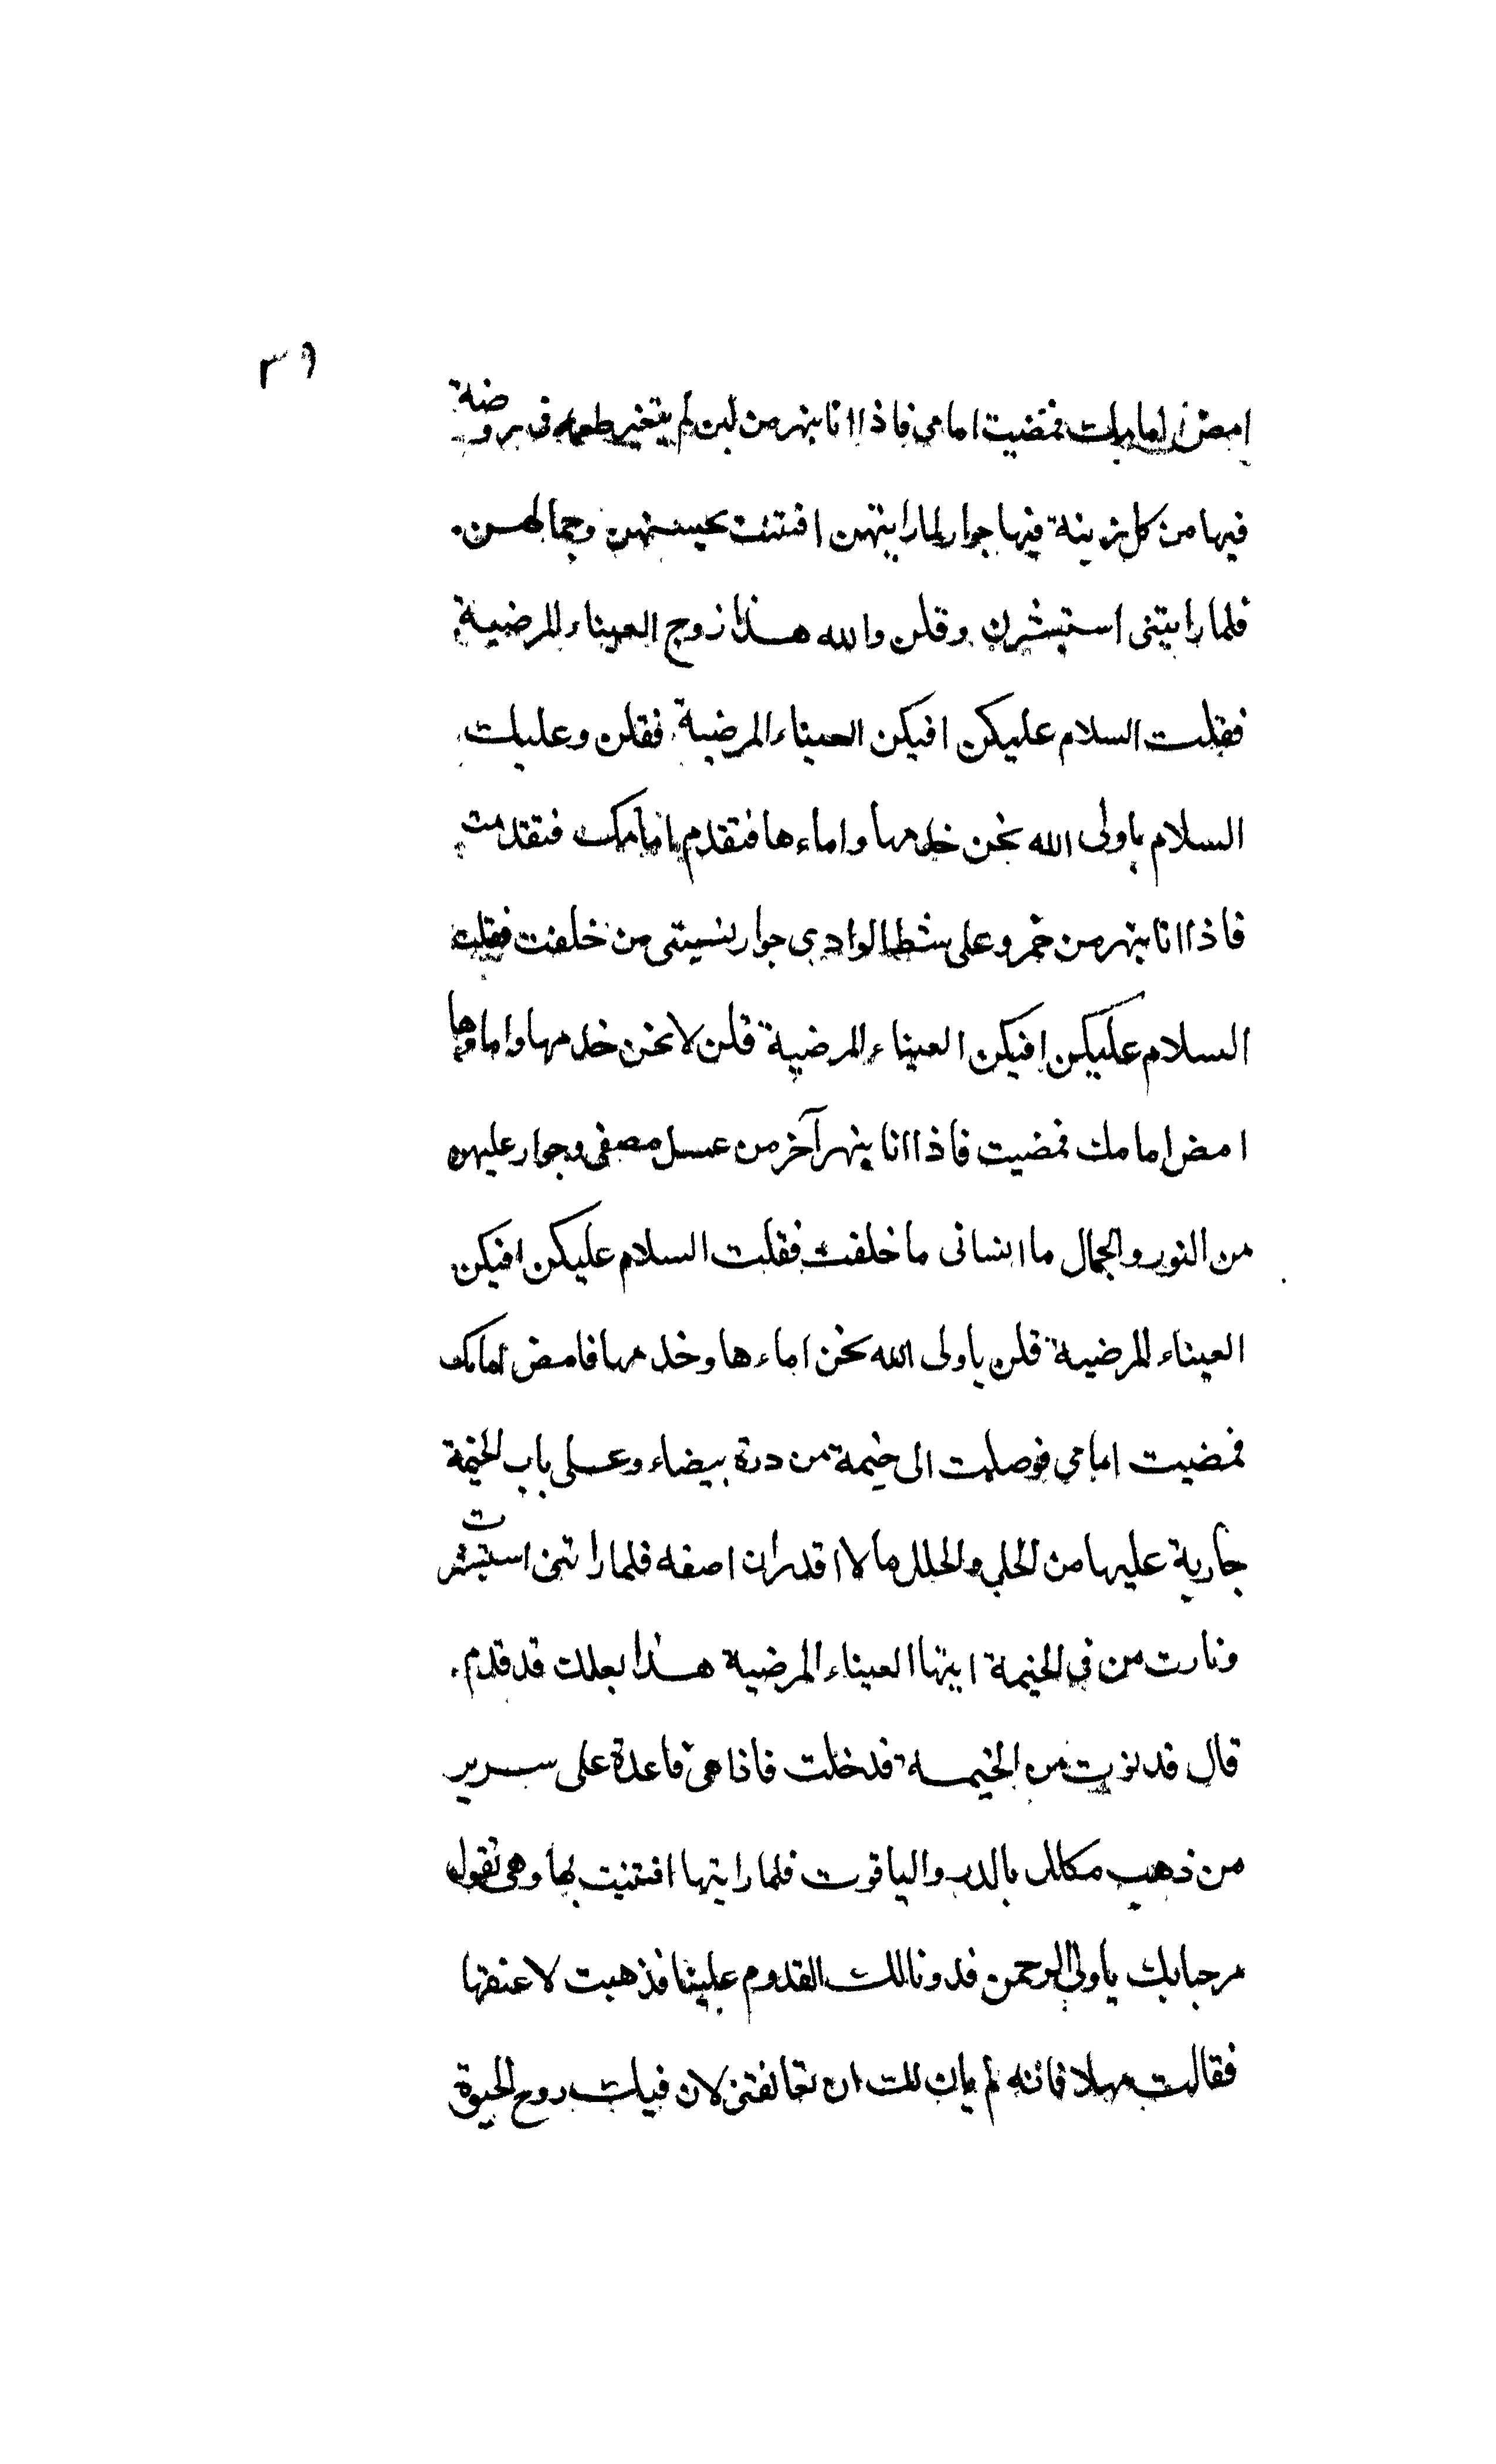 ٣٩
امض امامك فمضيت امامى فاذا انا بنهر من لبن لم يتغير طعمه فى روضة
فيها من كل زينة فيها جوار لما رايتهن افتتنت بحسنهن وجمالهن
فلما رايتنى استبشرن وقلن والله هذا زوج العيناء المرضية
فقلت السلام عليكن افيكن العيناء المرضية فقلن وعليك
السلام يا ولى الله نحن خدمها واماءها فتقدم امامك فتقدمت
فاذا انا بنهر من خمر وعلى شط الوادى جوار نسيتنى من خلفت فقلت
السلام عليكن افيكن العيناء المرضية قلن لا نحن خدمها واماؤها
امض امامك فمضيت فاذا انا بنهر آخر من عسل مصفى وجوار عليهن
من النور والجمال ما انسانى ما خلفت فقلت السلام عليكن افيكن
العيناء المرضية قلن يا ولى الله نحن اماءها وخدمها فامض امامك
فمضيت امامى فوصلت الى خيمة من درة بيضاء وعلى باب الخيمة
جارية عليها من الحلي والحلل ما لا اقدر ان اصفه فلما راتنى استبشرت
ونادت من فى الخيمة ايتها العيناء المرضية هذا بعلك قد قدم
قال فدنوت من الخيمة فدخلت فاذا هى قاعدة على سرير
من ذهب مكلل بالدر والياقوت فلما رايتها افتتنت بها وهى تقول
مرحبا بك يا ولى الرحمن قد دنا لك القدوم علينا فذهبت لاعنقها
فقالت مهلا فانه لم يان لك ان تعانقنى لان فيك روح الحيوة